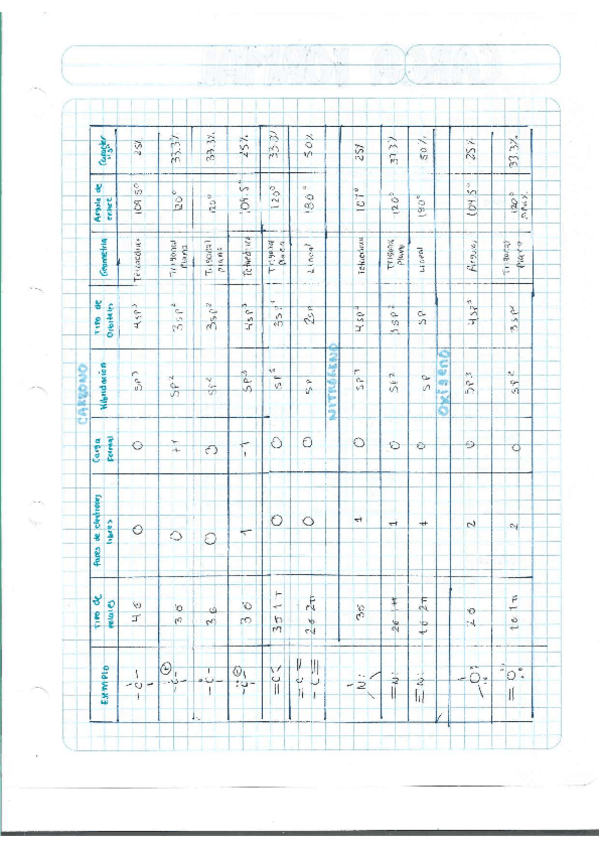 CARBONO
EJEMPLO Tipo de enlaces Pares de electrones libres Carga Formal Hibridación Tipo de Orbitales Geometría Angulo de enlace Caracter "s"
-C- 4σ 0 0 sp³ 4sp³ Tetraédrica 109.5° 25%
-C⊕- 3σ 0 +1 sp² 3sp² Trigonal plana 120° 33.3%
-C- 3σ 0 sp² 3sp² Trigonal plana 120° 33.3%
-C- 3σ 1 -1 sp³ 4sp³ Tetraédrica 109.5° 25%
=C< 3σ 1π 0 0 sp² 3sp² Trigonal plana 120° 33.3%
=C= -C≡ 2σ 2π 0 0 sp 2sp Lineal 180° 50%
NITRÓGENO
N: 3σ 1 0 sp³ 4sp³ 107° 25%
=N: 2σ 1π 1 0 sp2 3sp2 Trigonal plana 120° 33.3%
≡N: 1σ 2π 1 0 sp sp Lineal 180° 50%
OXÍGENO
-O: 2σ 2 0 sp³ 4sp³ Angular 104.5° 25%
=O: 1σ 1π 2 0 sp² 3sp² Trigonal plana 120° aprox. 33.3%